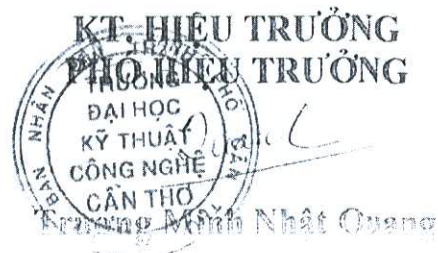 KT. HIỆU TRƯỞNG
PHÓ HIỆU TRƯỞNG
BAN NHÂN
TRƯỜNG
ĐẠI HỌC
KỸ THUẬT
CÔNG NGHỆ
CẦN THƠ
Trương Minh Nhật Quang